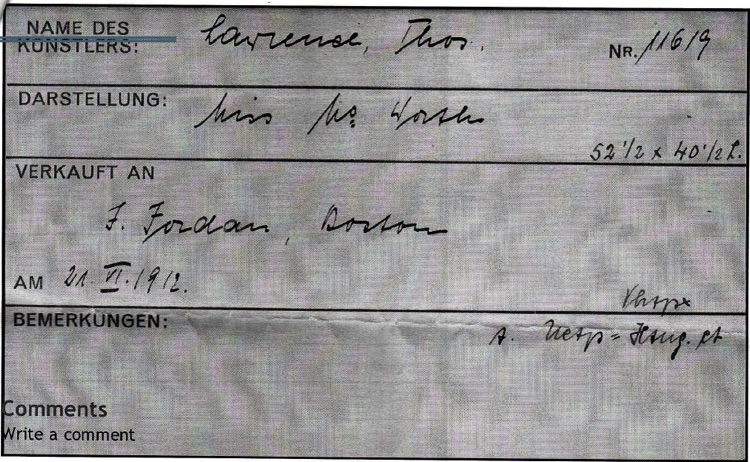 NAME DES
KÜNSTLERS: Lawrence, Thos. NR. 11619
DARSTELLUNG: Miss Worth
52 1/2 x 40 1/2 L.
VERKAUFT AN
F. Jordan, Boston
AM 21. VI. 1912.
BEMERKUNGEN:
Comments
Write a comment